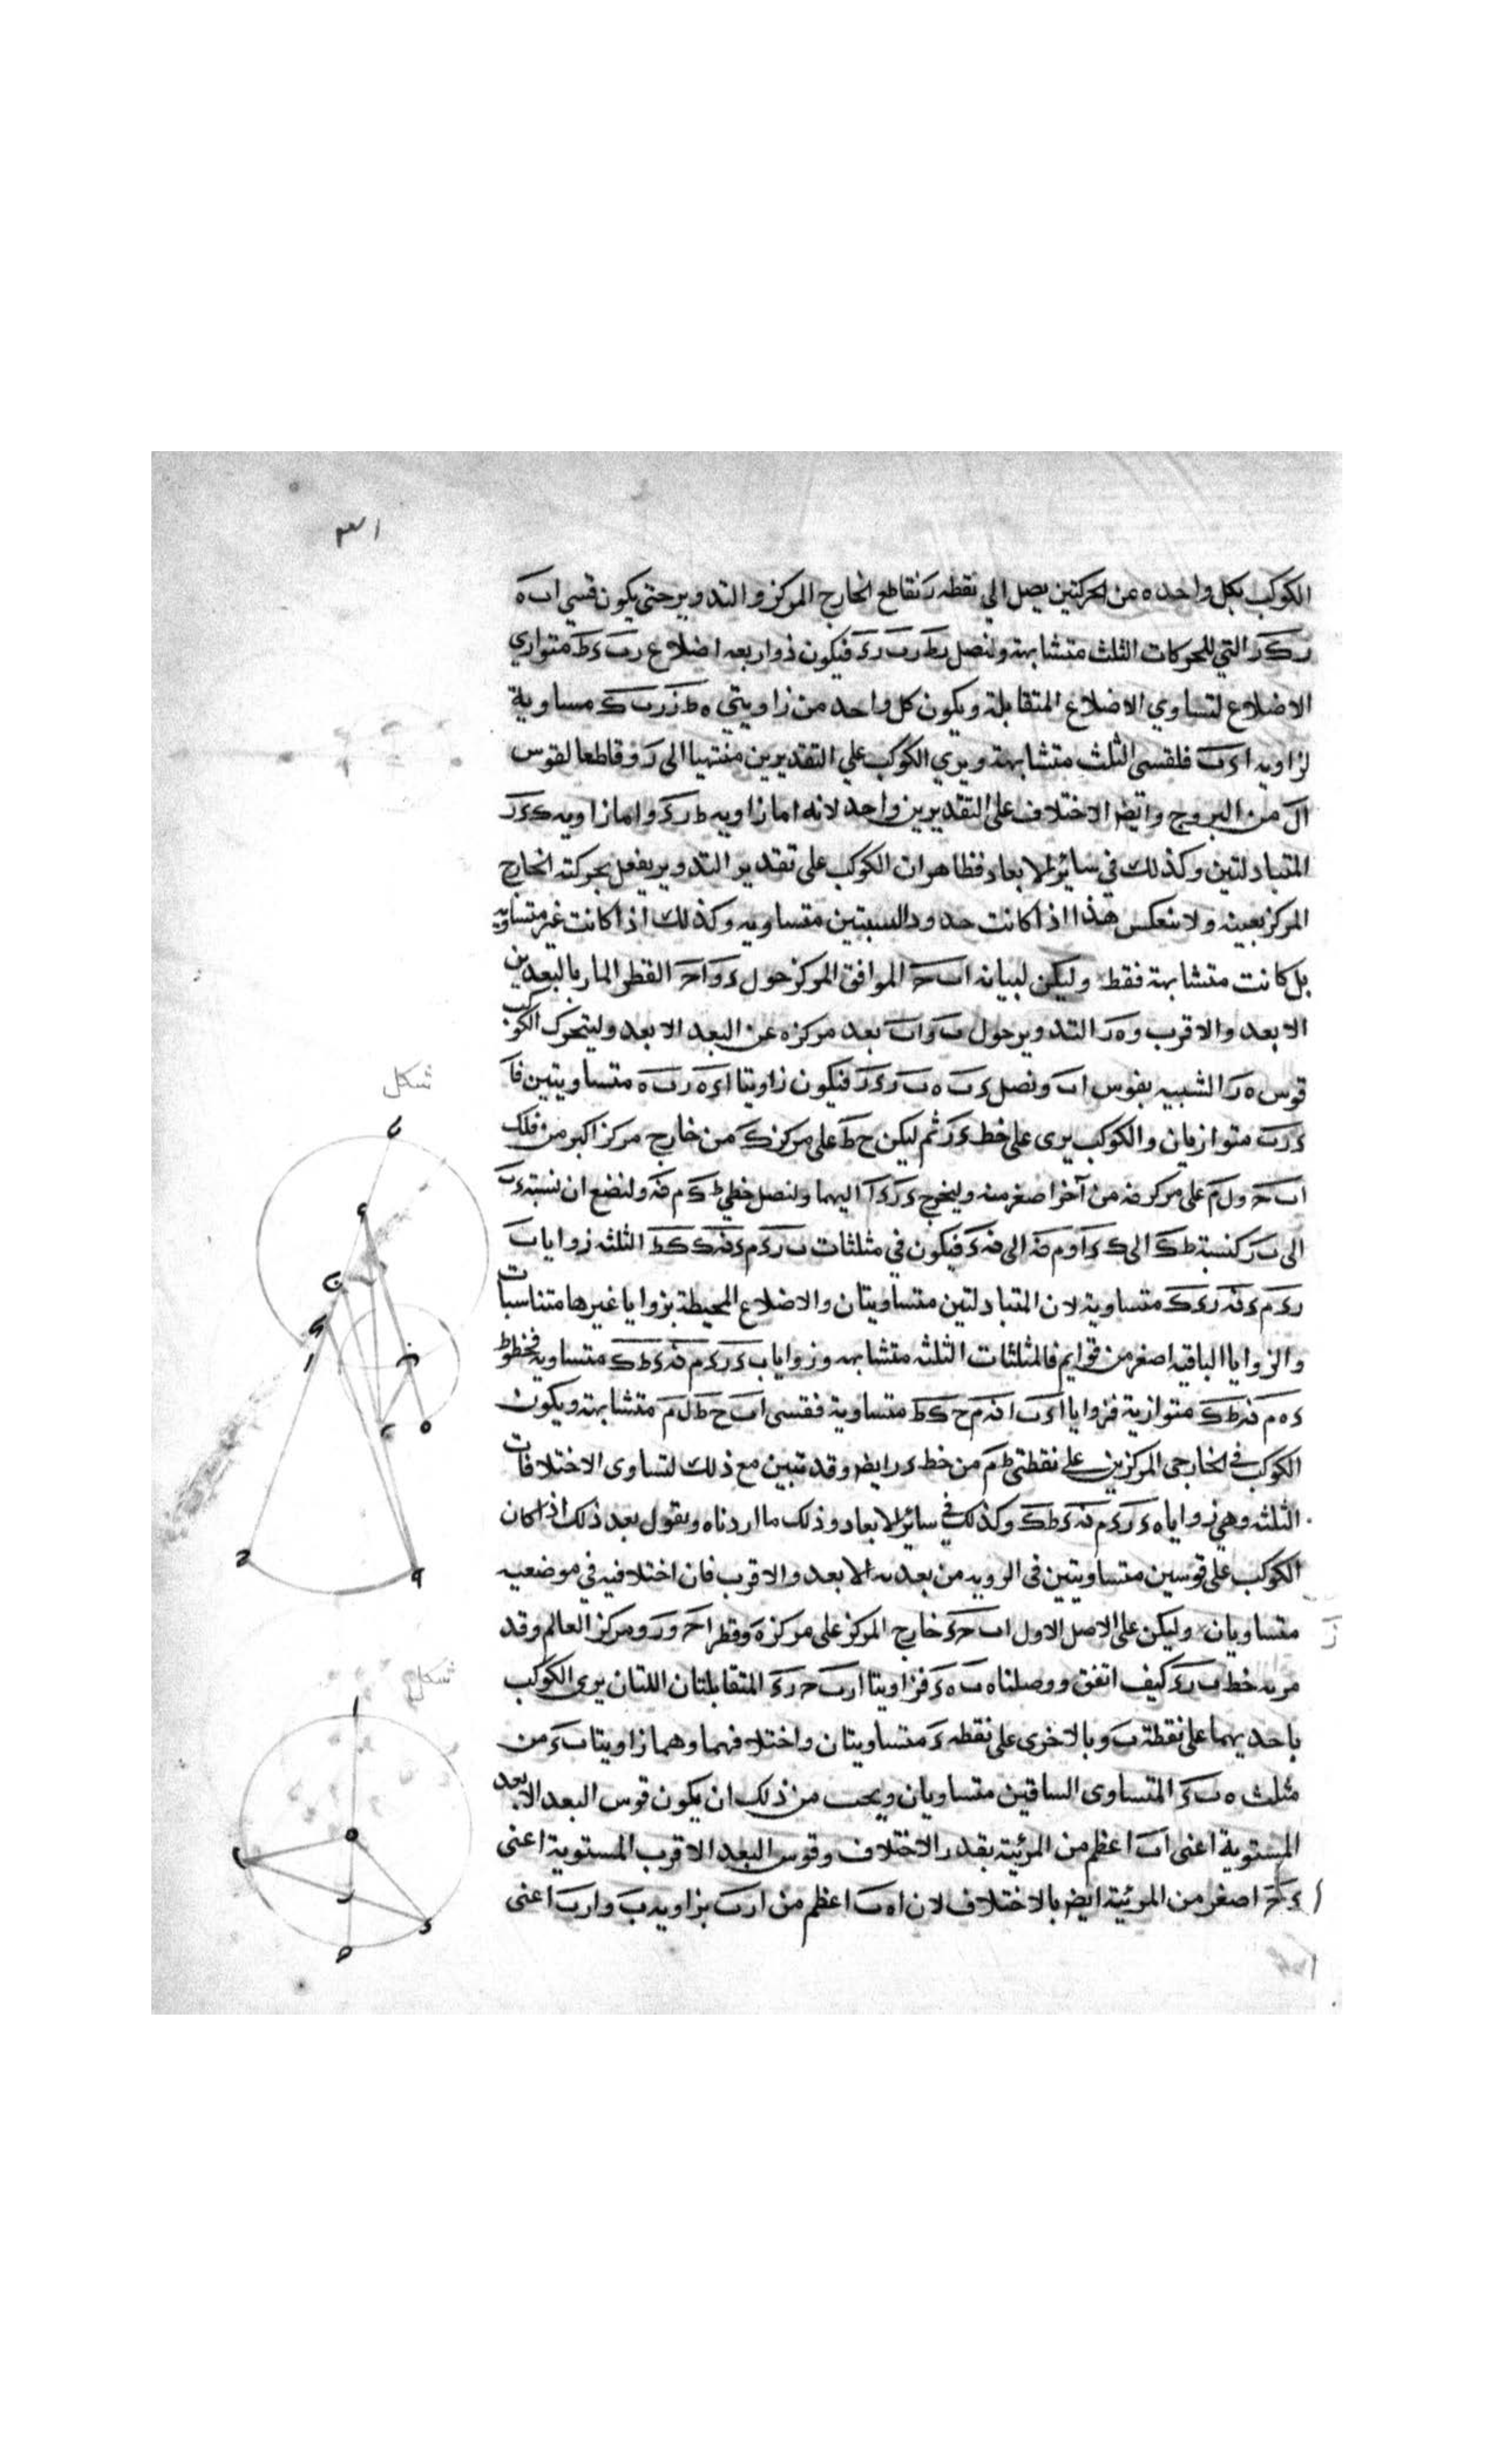 ٣١
الكوكب بكل واحده من الحركتين يصل الى نقطه ر تقاطع الخارج المركز والتدوير حتى يكون قسي اب ه
ر ك ر التي للحركات الثلث متشابهة ولنصل ر ط ر ب ر ء فيكون ذو اربعه اضلاع ر ب ء ط متوازي
الاضلاع لتساوي الاضلاع المتقابلة ويكون كل واحد من زاويتي ه ط ز ر ب ك مساوية
لزاويه ا ء ب فلقسي الثلث متشابهة ويري الكوكب علي التقديرين منتهيا الى ر و قاطعا لقوس
ال من البروج وايضا الاختلاف على التقديرين واحد لانه اما زاويه ط ر ء واما زاويه ك ء ر
المتبادلتين وكذلك في سائر الابعاد فظاهر ان الكوكب على تقدير التدوير يفعل بحركته الخارج
المركز بعينه ولا ينعكس هذا اذا كانت حدود النسبتين متساويه وكذلك اذا كانت غير متساويه
بل كانت متشابهة فقط وليكن لبيانه اب ح الموافق المركز حول ء و ا ح القطر المار بالبعدين
الابعد والاقرب و ه ر التدوير حول ب و اب بعد مركزه عن البعد الابعد وليتحرك الكوكب
قوس ه ر الشبيه بقوس اب ونصل ء ب ه ب ر ء ر فيكون زاويتا ا ء ه ر ب ه متساويتين فا
ء ر ب متوازيان والكوكب يرى على خط ء ر ثم ليكن ح ط على مركز ك من خارج مركز اكبر من فلك
اب ح و ل م على مركز ن من آخر اصغر منه وليخرج ء ر ء ا اليهما ولنصل خطي ط ك م ن ولنضع ان نسبة ء ب
الى ب ر كنسبة ط ك الى ك ء و م ن الى ن ء فيكون في مثلثات ب ر ء م ء ن ك ك ط الثلثه زوايا ب
ر ء م ء ن ر ء ك متساوية لان المتبادلتين متساويتان والاضلاع المحيطة بزوايا غيرها متناسبات
والزوايا الباقيه اصغر من قوايم فالمثلثات الثلثه متشابهه وزوايا ب ء ر ء م ن ء ط ك متساويه فخطوط
ء ه م ن ط ك متوازية فزوايا ا ء ب ا ن م ح ك ط متساوية فقسي اب ح ط ل م متشابهة ويكون
الكوكب في الخارجي المركزين علي نقطتي ط م من خط ء ر ايضا وقد تبين مع ذلك لتساوى الاختلافات
الثلثه وهي زوايا ه ء ر ء م ن ء ط ك وكذلك في سائر الابعاد وذلك ما اردناه ونقول بعد ذلك اذا كان
الكوكب على قوسين متساويتين في الرويه من بعديه الابعد والاقرب فان اختلافيه في موضعيه
متساويان وليكن على الاصل الاول اب ح ء خارج المركز على مركز ه وقطر ا ح و ر و مركز العالم وقد
مر به خط ب ر ء كيف اتفق ووصلنا ه ب ه ء فزاويتا ا ر ب ح ر ء المتقابلتان اللتان يرى الكوكب
باحديهما على نقطة ب وبالاخرى على نقطه ء متساويتان واختلافهما وهما زاويتا ب ء من
مثلث ه ب ء المتساوى الساقين متساويان ويجب من ذلك ان يكون قوس البعد الابعد
المستوية اعنى اب اعظم من المرئية بقدر الاختلاف وقوس البعد الاقرب المستوية اعنى
ء ح اصغر من المرئية ايضا بالاختلاف لان ا ه ب اعظم من ا ر ب بزاويه ب و ا ر ب اعنى
شكل
شكل